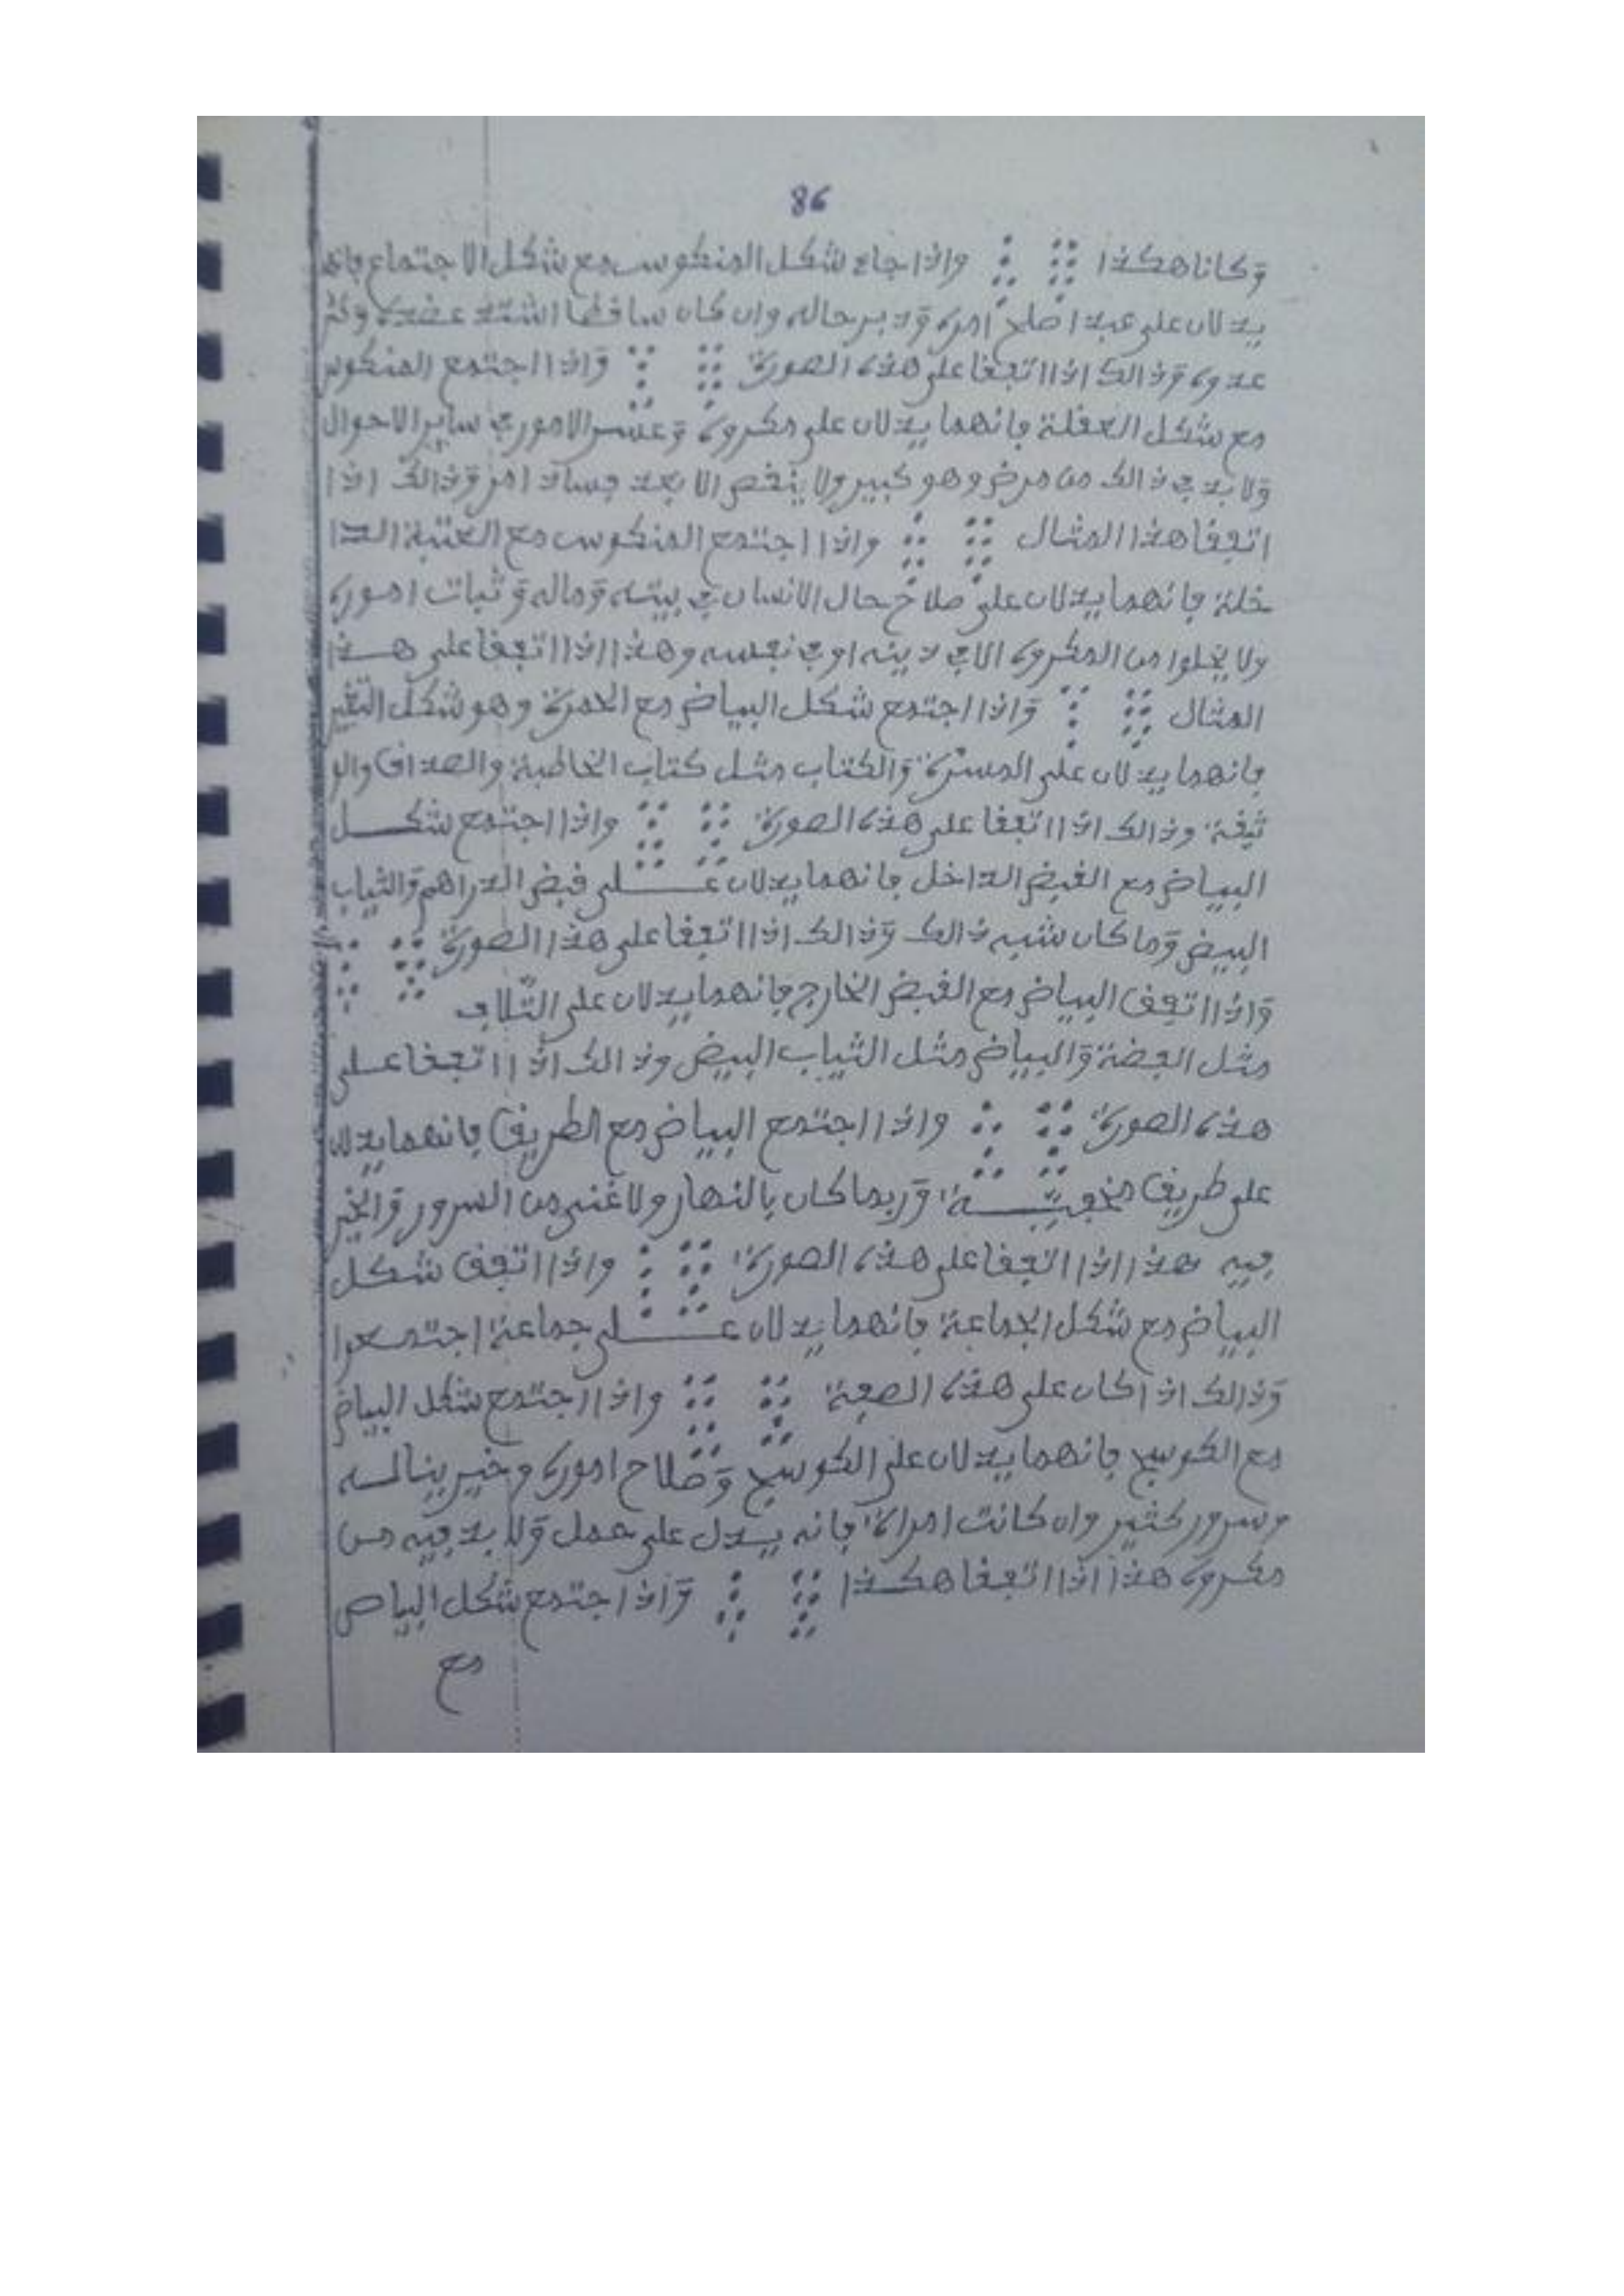 86
وكانا هكذا واذا جاء شكل المنكوس مع شكل الاجتماع فانهما
يدلان على عبد اصلح امره ودبر حاله وان كان ساقطا اشتد عضده وكثر
عدوه وذالك اذا اتفقا على هذه الصورة واذا اجتمع المنكوس
مع شكل العقلة فانهما يدلان على مكروه وعسر الامور في ساير الاحوال
ولا بد في ذالك من مرض وهو كبير ولا ينقص الا بعد فساد امر وذالك اذا
اتفقا هذا المثال واذا اجتمع المنكوس مع العتبة الدا
خلة فانهما يدلان على صلاح حال الانسان في بيته وماله وثبات اموره
ولا يخلوا من المكروه الا في دينه او في نفسه وهذا اذا اتفقا على هذا
المثال واذا اجتمع شكل البياض مع الحمرة وهو شكل التغير
فانهما يدلان على المسرة والكتاب مثل كتاب الخاطبة والصداق والو
ثيقة وذالك اذا اتفقا على هذه الصورة واذا اجتمع شكل
البياض مع القبض الداخل فانهما يدلان على قبض الدراهم والثياب
البيض وما كان شبيه ذالك وذالك اذا اتفقا على هذا الصورة
واذا اتفق البياض مع القبض الخارج فانهما يدلان على التلاف
مثل الفضة والبياض مثل الثياب البيض وذالك اذا اتفقا على
هذه الصورة واذا اجتمع البياض مع الطريق فانهما يدلان
على طريق وربما كان بالنهار ولا غنى من السرور والخير
فيه هذا اذا اتفقا على هذه الصورة واذا اتفق شكل
البياض مع شكل الجماعة فانهما يدلان على جماعة اجتمعوا
وذالك اذا كان على هذه الصفة واذا اجتمع شكل البياض
مع الكوسج فانهما يدلان على الكوسج وصلاح اموره وخير يناله
وسرور كثير وان كانت امراة فانه يدل على حمل ولا بد فيه من
مكروه هذا اذا اتفقا هكذا واذا اجتمع شكل البياض
مع